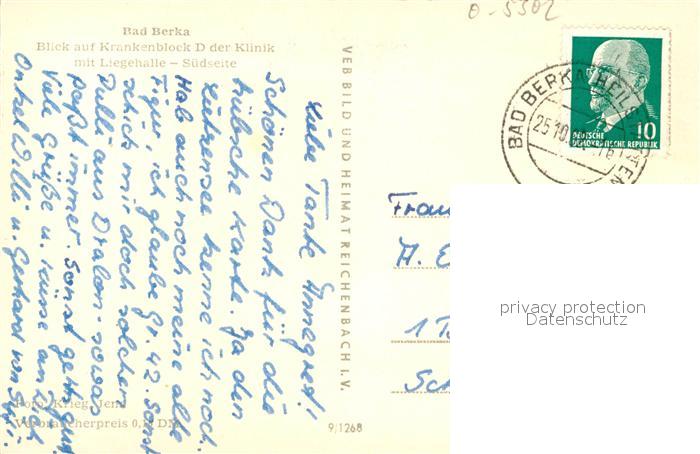 0-5302
Bad Berka
Blick auf Krankenblock D der Klinik
mit Liegehalle – Südseite
BAD BERKA HEILS
25.10
10
DEUTSCHE
DEMOKRATISCHE REPUBLIK
Liebe Tante Annegret!
Schönen Dank für die
hübsche Karte. Ja den
kenne ich noch.
Hab auch noch meine alte
Figur, ich glaube Gr. 42. Sonst
schick mir doch solchen
Pulli aus Dralon. sowas
paßt immer. Sonst geht's gut
Viele Grüße u. Küsse an Dich
Onkel Willi u. Gerhard von
VEB BILD UND HEIMAT REICHENBACH I. V.
Frau
A. E
1 B
Sc
privacy protection
Datenschutz
Foto: Krieg, Jena
Verbraucherpreis 0, DM
9/1268